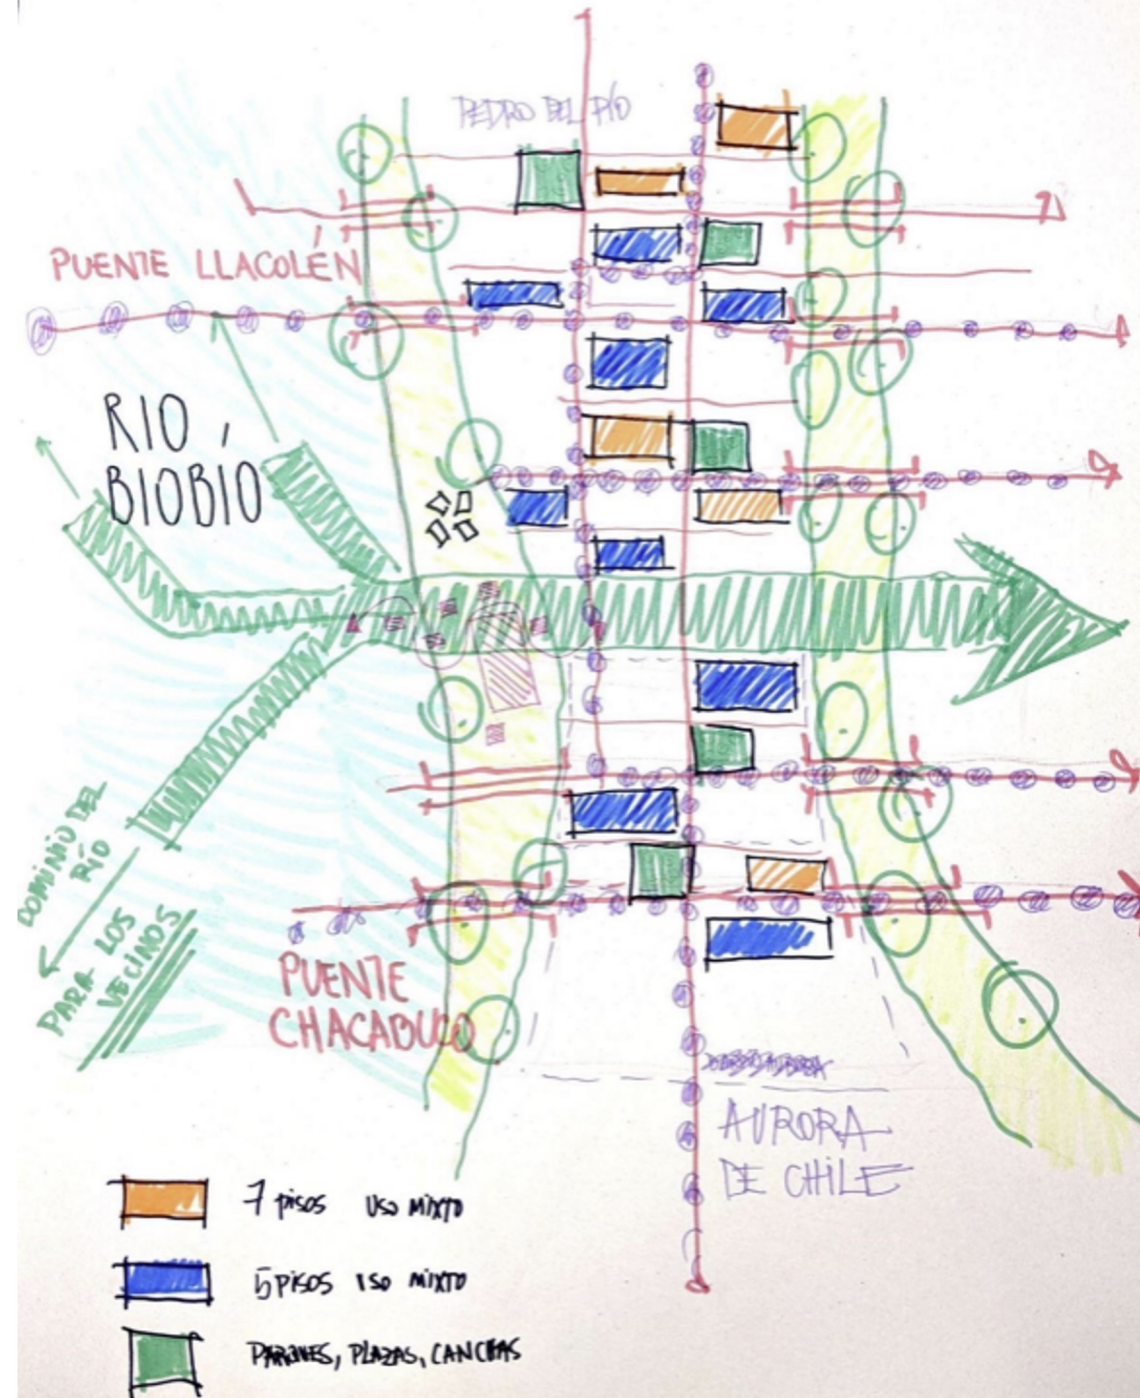 PEDRO DEL RÍO
PUENTE LLACOLÉN
RIO
BIOBÍO
DOMINIO DEL
RÍO
PARA LOS
VECINOS
PUENTE
CHACABUCO
AURORA
DE CHILE
7 pisos USO MIXTO
5 PISOS USO MIXTO
PARQUES, PLAZAS, CANCHAS